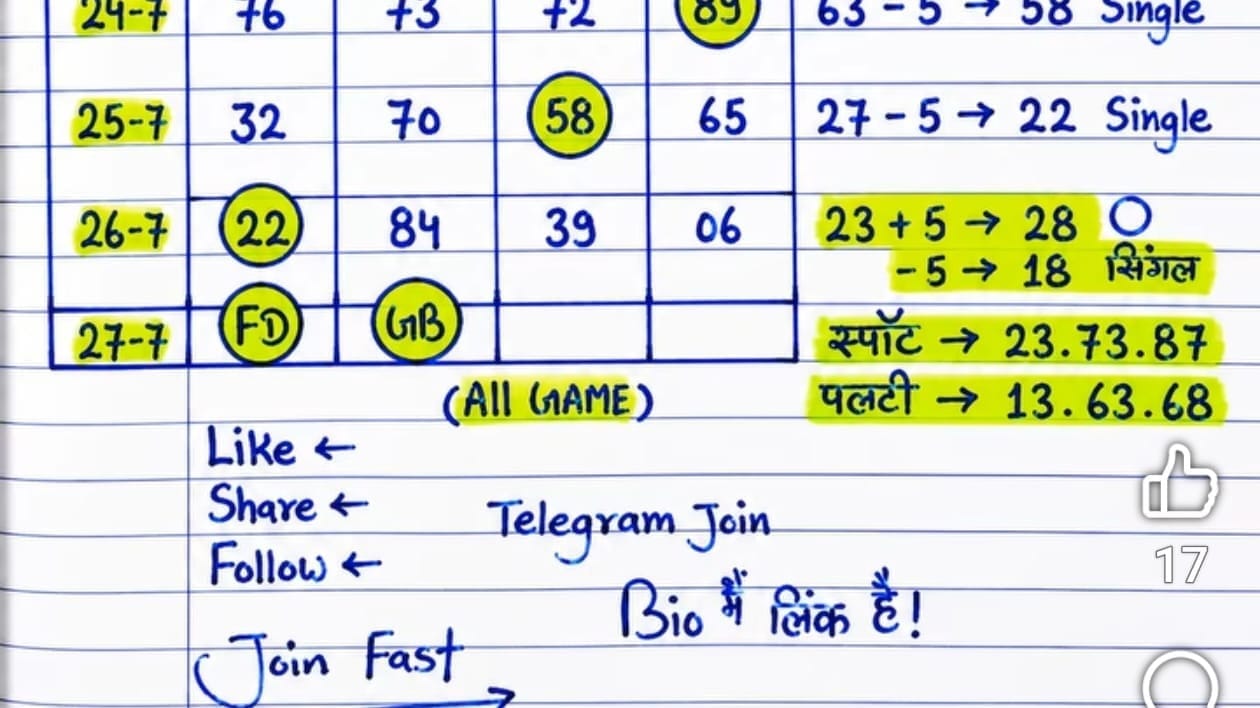 24-7 76 73 72 89 63 - 5 → 58 Single
25-7 32 70 58 65 27 - 5 → 22 Single
26-7 22 84 39 06 23 + 5 → 28 O
- 5 → 18 सिंगल
27-7 FD GB स्पॉट → 23.73.87
(All GAME) पलटी → 13.63.68
Like ←
Share ← Telegram Join
Follow ←
17
Bio में लिंक है!
Join Fast →